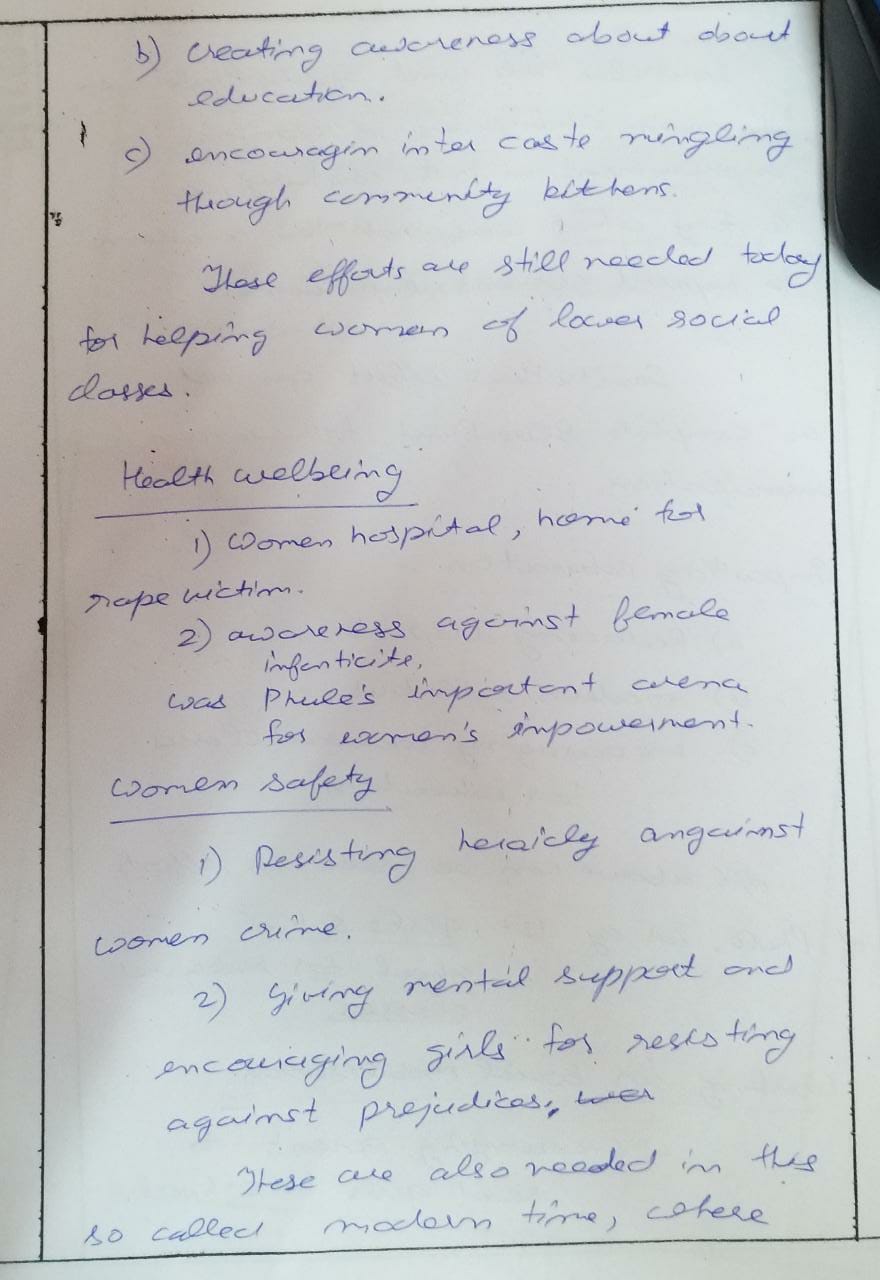 b) creating awareness about about
education.
c) encouragin inter caste mingling
though community kitchens.
These efforts are still needed today
for helping women of lower social
classes.
Health wellbeing
1) Women hospital, home for
rape victim.
2) awareness against female
infanticite,
was Phule's important arena
for women's impowerment.
Women safety
1) Resisting heroicly angainst
women crime.
2) Giving mental support and
encouraging girls for resisting
against prejudices,
These are also needed in this
so called modern time, where